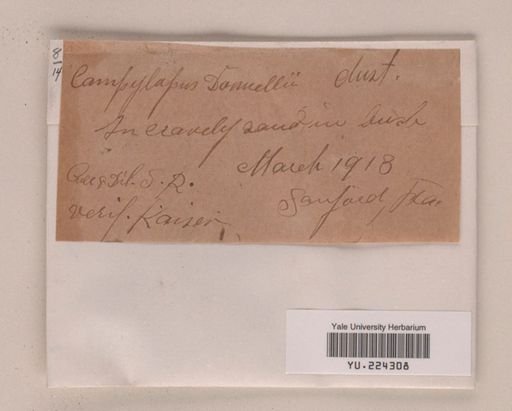 8/14
Campylopus Donnellii Aust.
In gravely sand in bush
March 1918
Coll. & Det. S. R.
Sanford, Fla.
verif. Kaiser
Yale University Herbarium
YU.224308